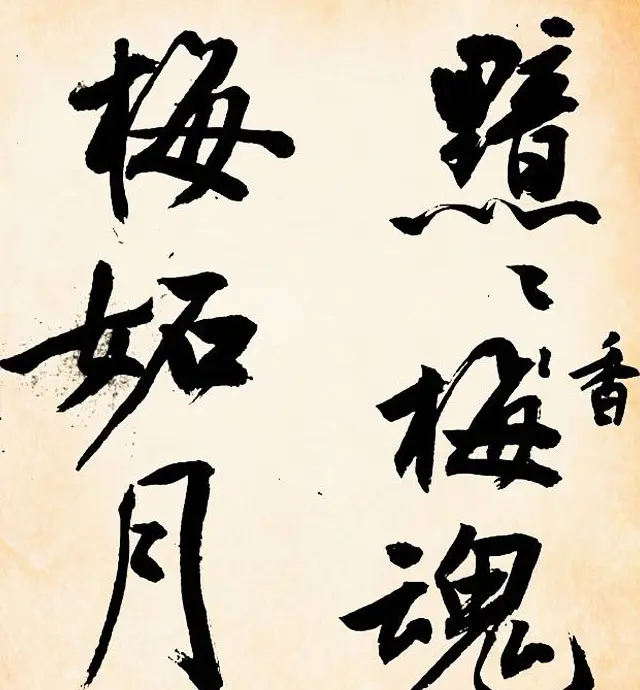 黯〻梅魂
香
梅妬月